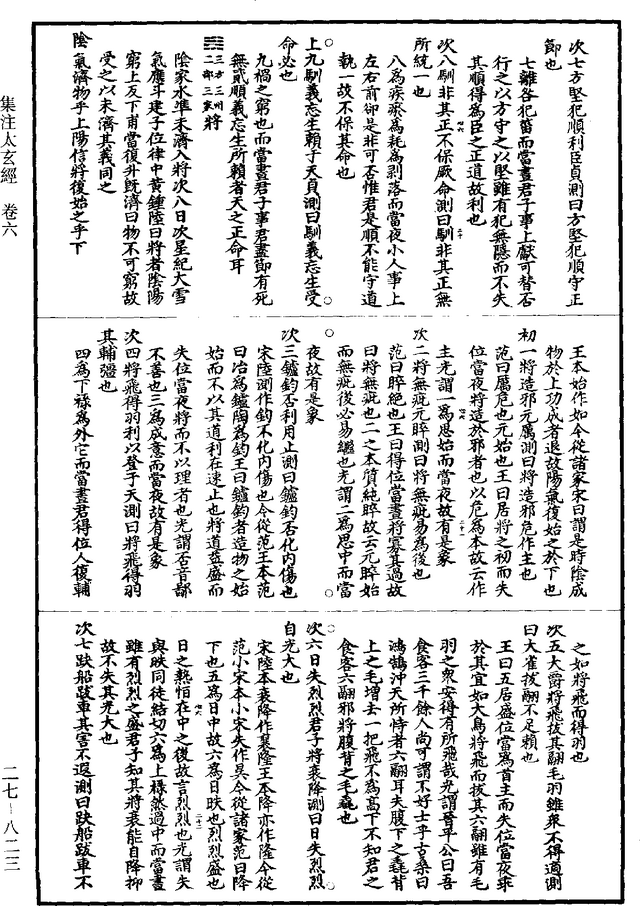 次七方堅犯順利臣貞測曰方堅犯順守正
節也
七離各犯菑而當晝君子事上獻可替否
行之以方守之以堅雖有犯無隱而不失
其順得為臣之正道故利也
次八馴非其正不保厥命測曰馴非其正無
所統一也
八為疾瘀為耗為剝落而當夜小人事上
左右前卻是非可否惟君是順不能守道
執一故不保其命也
上九馴義忘生賴于天貞測曰馴義忘生受
命必也
九禍之窮也而當晝君子事君盡節有死
無貳順義忘生所賴者天之正命耳
三方三州二部三家將
陰家水準未濟入將次八日次星紀大雪
氣應斗建子位律中黃鍾陸曰將者陰陽
窮上反下甫當復升既濟曰物不可窮故
受之以未濟其義同之
陰氣濟物乎上陽信將復始之乎下
王本始作如今從諸家宋曰謂是時陰成
物於上功成者退故陽氣復始之於下也
初一將造邪元厲測曰將造邪危作主也
范曰厲危也元始也王曰居將之初而失
位當夜將造於邪者也以危為本故云作
主光謂一為思始而當夜故有是象
次二將無疵元睟測曰將無疵易為後也
范曰睟絶也王曰得位當晝將寡其過故
曰將無疵也二之本質純睟故云元睟始
而無疵後必易繼也光謂二為思中而當
夜故有是象
次三鑪鈞否利用止測曰鑪鈞否化內傷也
宋陸測作鈞不化內傷也今從范王本范
曰冶為鑪陶為鈞王曰鑪鈞者造物之始
始而不以其道利在速止也將道益盛而
失位當夜將而不以理者也光謂否音鄙
不善也三為成意而當夜故有是象
次四將飛得羽利以登于天測曰將飛得羽
其輔彊也
四為下祿為外它而當晝君得位人復輔
之如將飛而得羽也
次五大爵將飛拔其翮毛羽雖眾不得適測
曰大雀拔翮不足賴也
王曰五居盛位當為首主而失位當夜乖
於其宜如大鳥將飛而拔其六翮雖有毛
羽之眾安得有所飛哉光謂晉平公曰吾
食客三千餘人尚可謂不好士乎古桑曰
鴻鵠沖天所恃者六翮耳夫腹下之毳背
上之毛增去一把飛不為高下不知君之
食客六翮邪將腹背之毛毳也
次六日失烈烈君子將衰降測曰日失烈烈
自光大也
宋陸本衰降作襄隆王本降亦作隆今從
范小宋本小宋失作昊今從諸家范曰降
下也五為日中故六為日昳也烈烈盛也
日之熱怕在中之後故言烈烈也光謂失
與昳同徒結切六為上祿然過中而當晝
雖有烈烈之盛君子知其將衰能自降抑
故不失其光大也
次七趹船跋車其害不遐測曰趹船跋車不
集注太玄經 卷六
二七-八二三